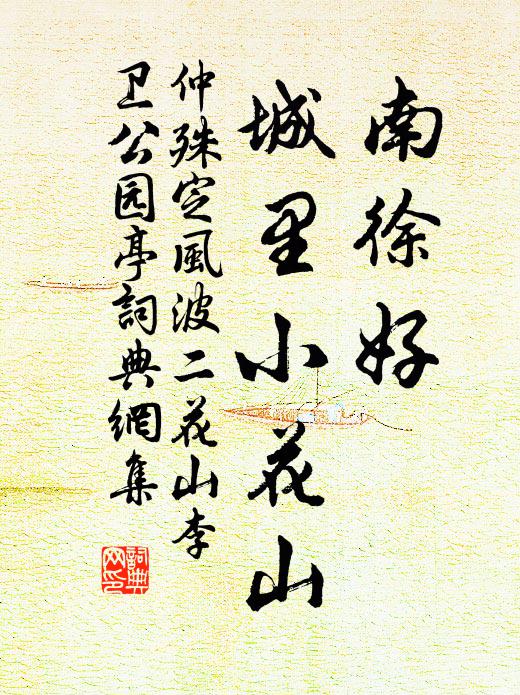 南徐好
城里小花山
仲殊定風波二花山李
卫公园亭詞典網集
詞典
网印